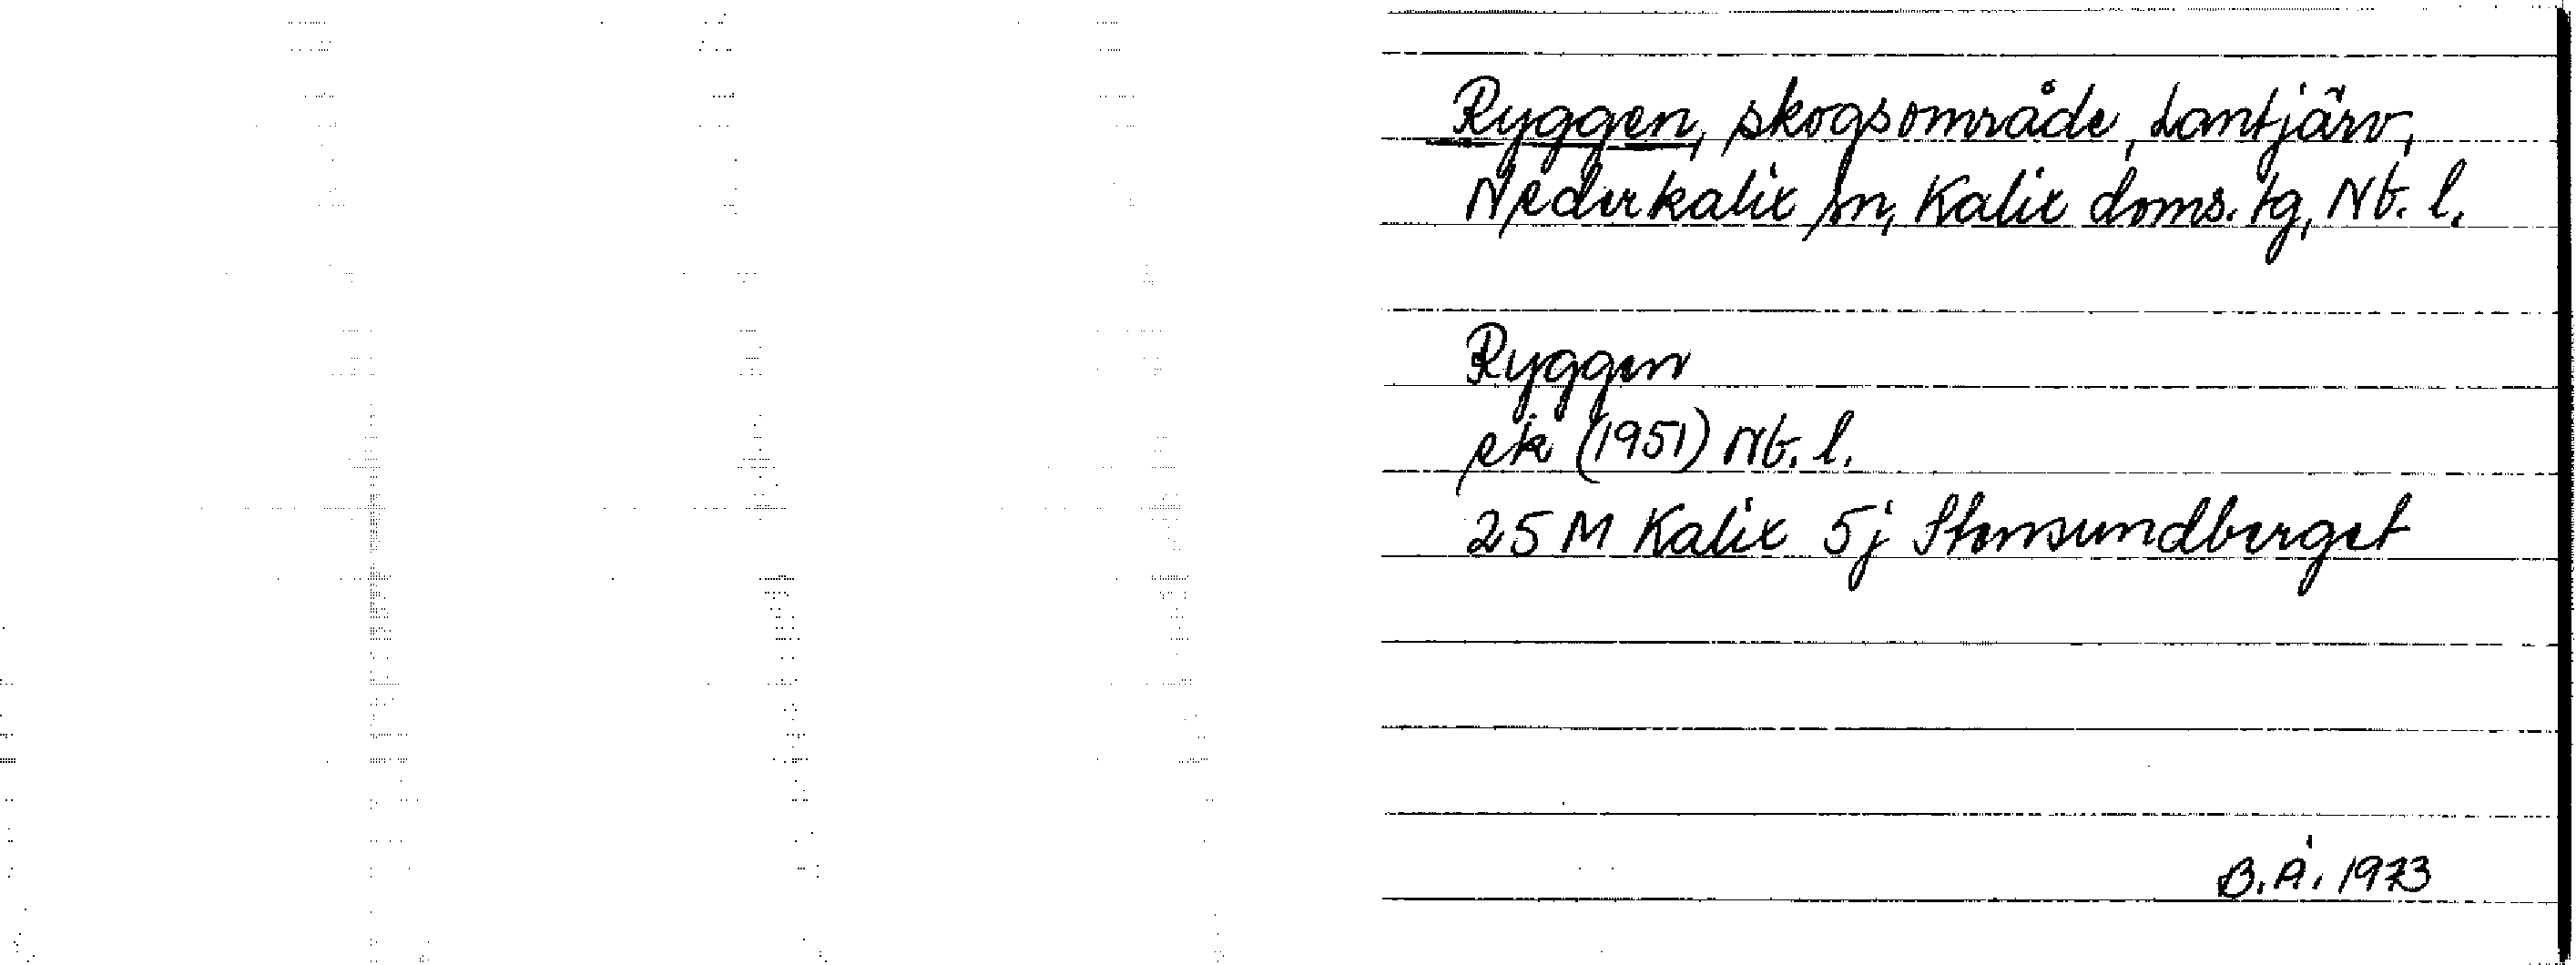 Ryggen, skogsområde, Lantjärv,
Nederkalix sn, Kalix doms. tg, Nb. l.
Ryggen
ek (1951) Nb. l.
25 M Kalix 5j Stensundberget
B.Å. 1973